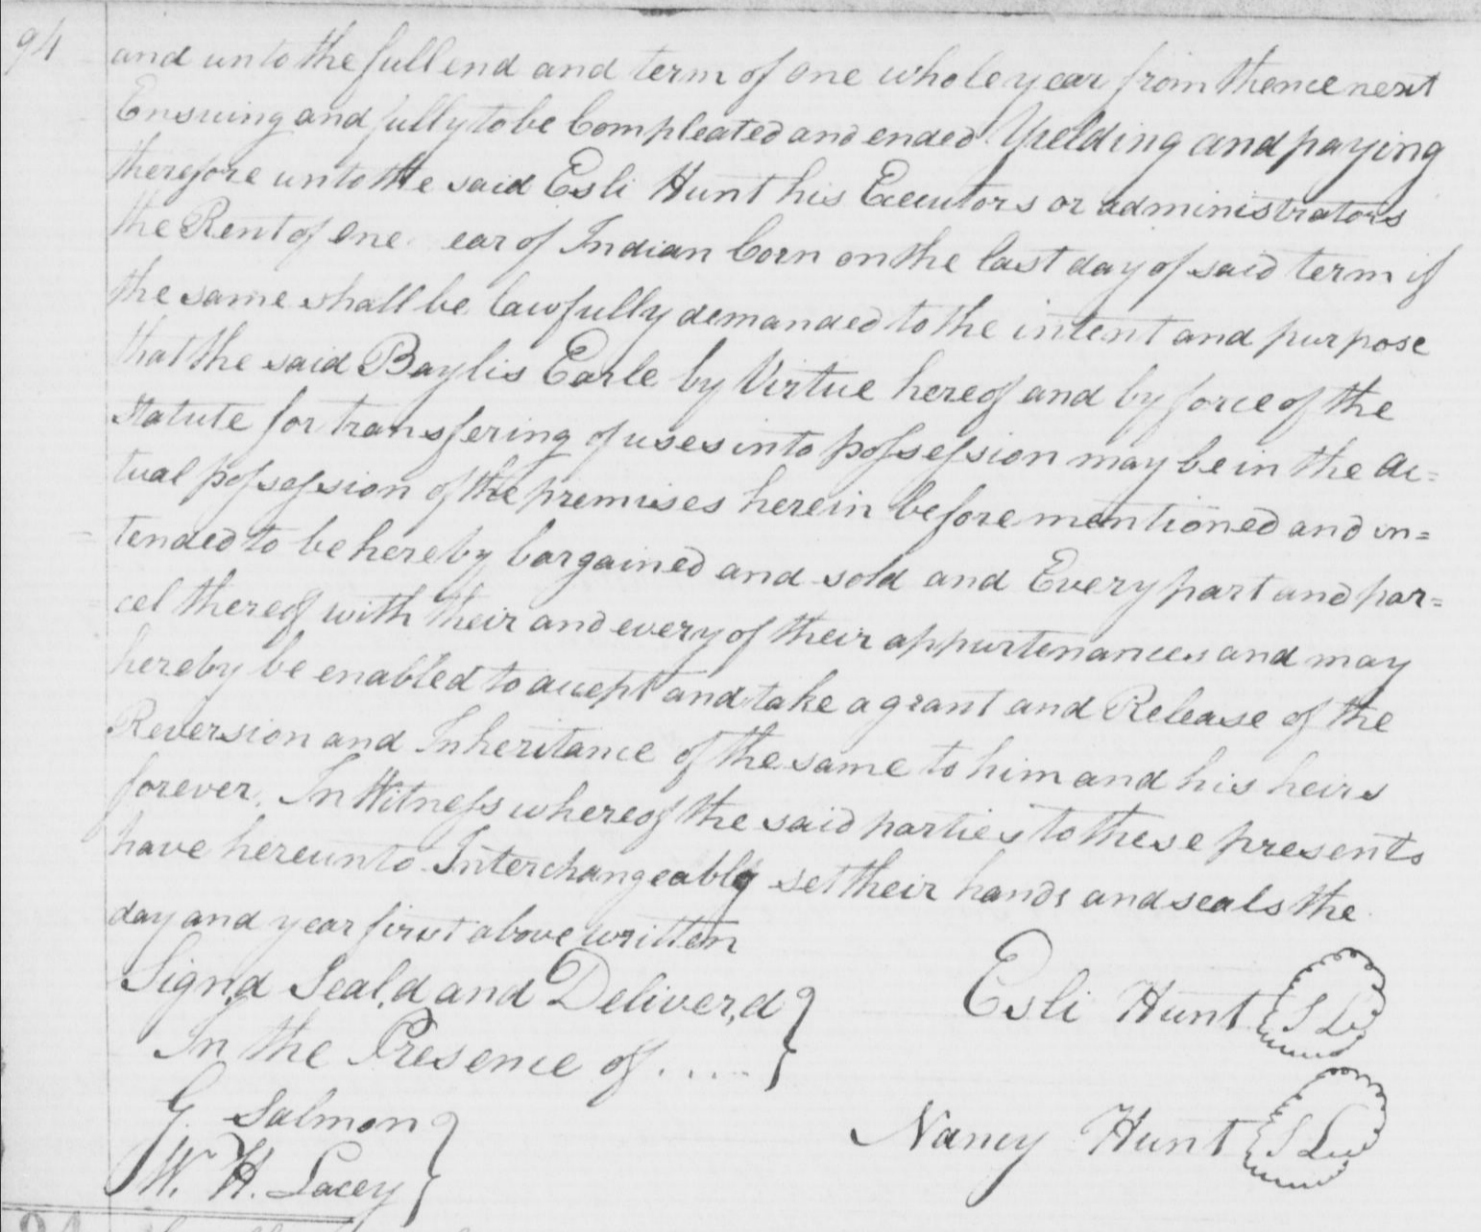 94
and unto the full end and term of one whole year from thence next
Ensuing and fully to be Compleated and ended Yielding and paying
therefore unto the said Esli Hunt his Executors or administrators
the Rent of one ear of Indian Corn on the last day of said term if
the same shall be lawfully demanded to the intent and purpose
that the said Baylis Earle by Virtue hereof and by force of the
statute for transfering of uses into possession may be in the ac=
tual possession of the premises herein before mentioned and in=
tended to be hereby bargained and sold and Every part and par=
cel thereof with their and every of their appurtenances and may
hereby be enabled to accept and take a grant and Release of the
Reversion and Inheritance of the same to him and his heirs
forever. In Witness whereof the said parties to these presents
have hereunto Interchangeably set their hands and seals the
day and year first above written
Sign,d Seal,d and Deliver,d
In the Presence of .....
Esli Hunt L S
G. Salmon
Nancy Hunt L S
W. H. Lacey